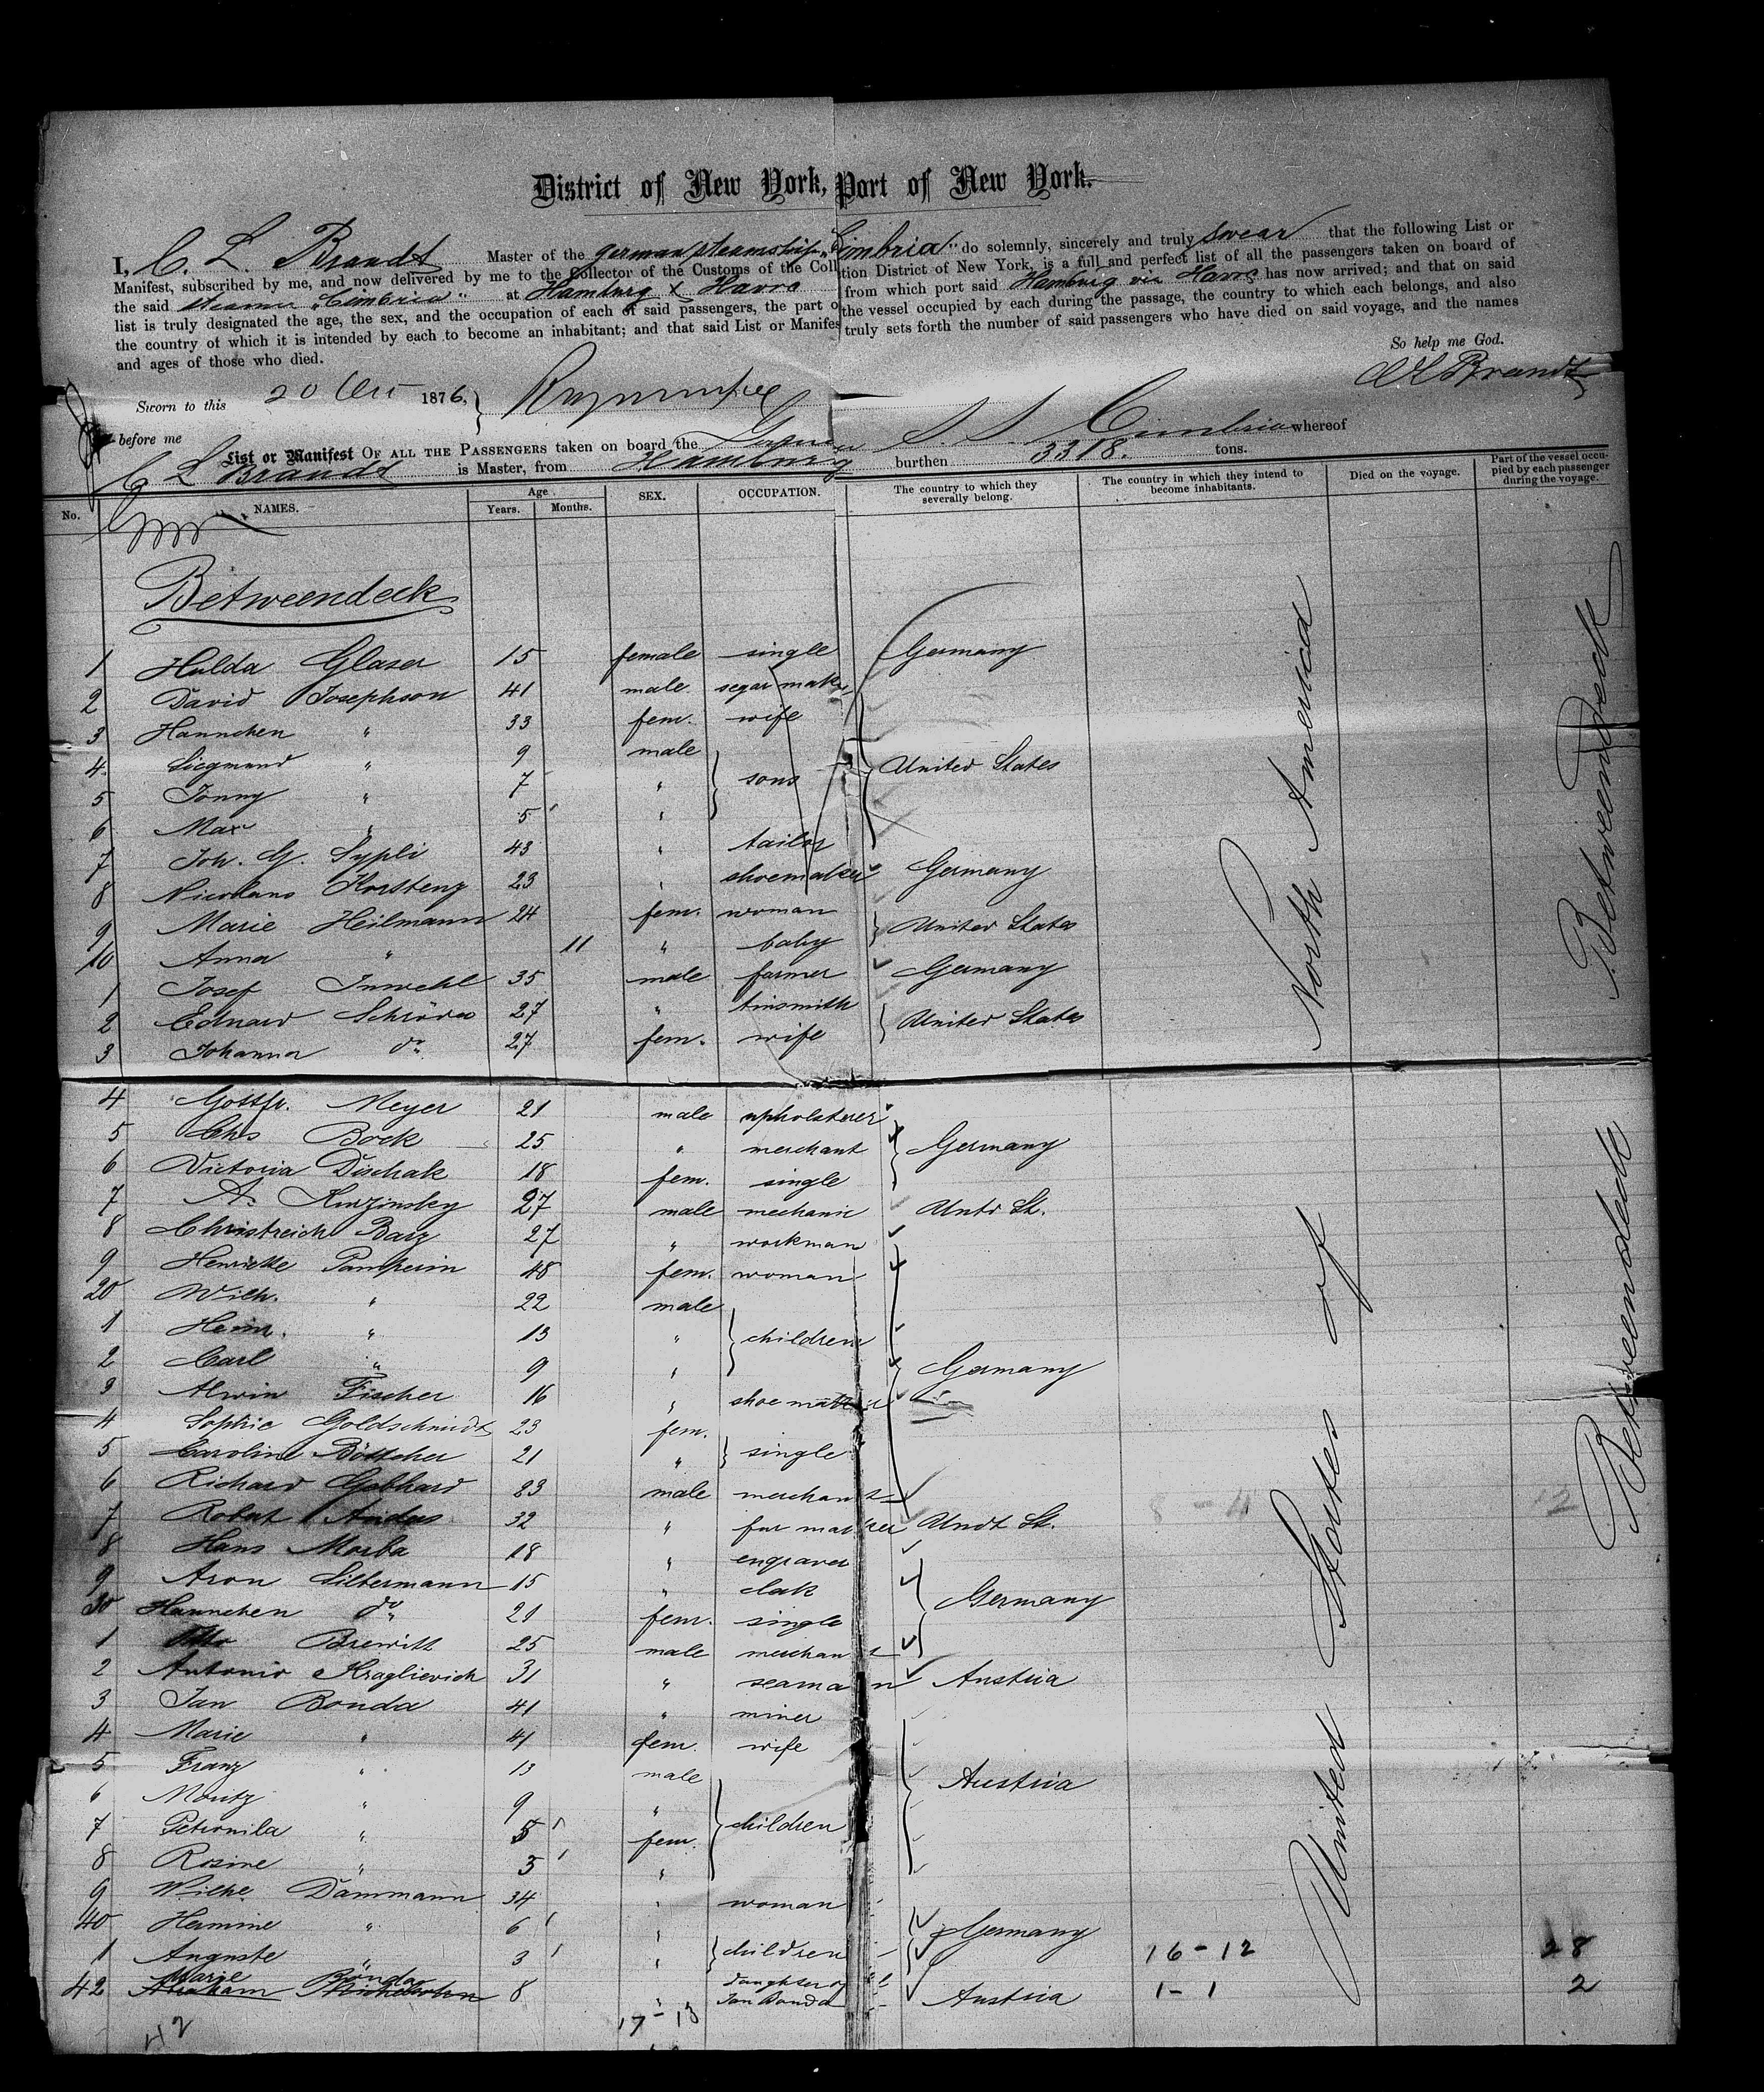 District of New York, Port of New York.
I, C. L. Brandt Master of the german steamship "Cimbria" do solemnly, sincerely and truly swear that the following List or
Manifest, subscribed by me, and now delivered by me to the Collector of the Customs of the Coll tion District of New York, is a full and perfect list of all the passengers taken on board of
the said steamer "Cimbria" at Hamburg & Havre from which port said Hamburg via Havre has now arrived; and that on said
list is truly designated the age, the sex, and the occupation of each of said passengers, the part o the vessel occupied by each during the passage, the country to which each belongs, and also
the country of which it is intended by each to become an inhabitant; and that said List or Manifes truly sets forth the number of said passengers who have died on said voyage, and the names
and ages of those who died.
So help me God.
Sworn to this 20 Oct 1876, C L Brandt
before me
List or Manifest OF ALL THE PASSENGERS taken on board the German S. S. Cimbria whereof
C L Brandt is Master, from Hamburg burthen 3318. tons.
No. NAMES. Age Years. Months. SEX. OCCUPATION. The country to which they severally belong. The country in which they intend to become inhabitants. Died on the voyage. Part of the vessel occupied by each passenger during the voyage.
Betweendeck
1 Hulda Glaser 15 female single Germany
2 David Josephson 41 male segar maker
3 Hannchen " 33 fem. wife
4 Siegmund " 9 male
5 Jonny " 7 " sons United States
6 Max " 5 "
7 Joh. G. Sypli 43 " tailor
8 Nicolaus Korsteny 23 " shoemaker Germany
9 Marie Heilmann 24 fem. woman United States
10 Anna " 11 " baby
1 Josef Inwehl 35 male farmer Germany
2 Eduard Schröder 27 " tinsmith United States
3 Johanna do. 27 fem. wife
4 Gottfr. Meyer 21 male upholsterer
5 Chs Bock 25 " merchant Germany
6 Victoria Dischak 18 fem. single
7 A. Kurzinsky 27 male mechanic Untd St.
8 Christreich Barz 27 " workman
9 Henriette Pamperin 48 fem. woman
20 Wilh. " 22 male
1 Heinr. " 13 " children
2 Carl " 9 " Germany
3 Alwin Fischer 16 " shoe maker
4 Sophie Goldschmidt 23 fem.
5 Caroline Böttcher 21 " single
6 Richard Gebhard 23 male merchant
7 Robert Anders 32 " fur marker Undt St.
8 Hans Morba 18 " engraver
9 Aron Silbermann 15 " clerk
30 Hannchen do 21 fem. single Germany
1 Otto Brewitt 25 male merchant
2 Antonio Kraglievich 31 " seaman Austria
3 Jan Bonda 41 " miner
4 Marie " 41 fem. wife
5 Franz " 13 male Austria
6 Moritz " 9 "
7 Petronila " 5 fem. children
8 Rosine " 3 "
9 Wilhe. Dammann 34 " woman
40 Hermine " 6 " Germany
1 Auguste " 3 " children 16-12 28
42 Marie Bonda 8 " daughter of Jan Bonda Austria 1-1 2
17-13
42
United States of North America
Betweendeck
Betweendeck